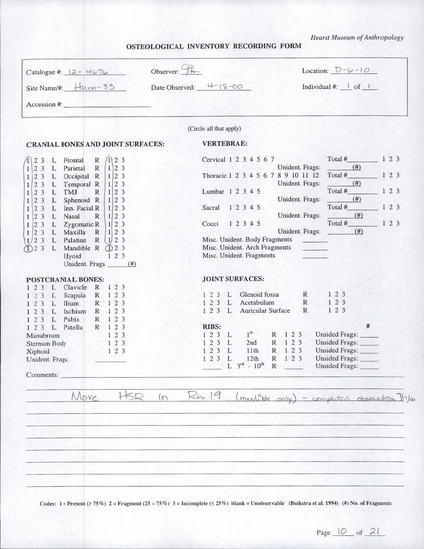 Hearst Museum of Anthropology
OSTEOLOGICAL INVENTORY RECORDING FORM
Catalogue #: 12-4676 Observer: Location: D-6-10
Site Name/#: Hum-35 Date Observed: 4-18-00 Individual #: 1 of 1
Accession #:
(Circle all that apply)
CRANIAL BONES AND JOINT SURFACES:
1 2 3 L Frontal R 1 2 3
1 2 3 L Parietal R 1 2 3
1 2 3 L Occipital R 1 2 3
1 2 3 L Temporal R 1 2 3
1 2 3 L TMJ R 1 2 3
1 2 3 L Sphenoid R 1 2 3
1 2 3 L Inn. Facial R 1 2 3
1 2 3 L Nasal R 1 2 3
1 2 3 L Zygomatic R 1 2 3
1 2 3 L Maxilla R 1 2 3
1 2 3 L Palatine R 1 2 3
1 2 3 L Mandible R 1 2 3
Hyoid 1 2 3
Unident. Frags (#)
VERTEBRAE:
Cervical 1 2 3 4 5 6 7 Total # 1 2 3
Unident. Frags: (#)
Thoracic 1 2 3 4 5 6 7 8 9 10 11 12 Total # 1 2 3
Unident. Frags: (#)
Lumbar 1 2 3 4 5 Total # 1 2 3
Unident. Frags: (#)
Sacral 1 2 3 4 5 Total # 1 2 3
Unident. Frags: (#)
Cocci 1 2 3 4 5 Total # 1 2 3
Unident. Frags: (#)
Misc. Unident. Body Fragments
Misc. Unident. Arch Fragments
Misc. Unident. Fragments
POSTCRANIAL BONES:
1 2 3 L Clavicle R 1 2 3
1 2 3 L Scapula R 1 2 3
1 2 3 L Ilium R 1 2 3
1 2 3 L Ischium R 1 2 3
1 2 3 L Pubis R 1 2 3
1 2 3 L Patella R 1 2 3
Manubrium 1 2 3
Sternum Body 1 2 3
Xiphoid 1 2 3
Unident. Frags:
JOINT SURFACES:
1 2 3 L Glenoid fossa R 1 2 3
1 2 3 L Acetabulum R 1 2 3
1 2 3 L Auricular Surface R 1 2 3
RIBS: #
1 2 3 L 1st R 1 2 3 Unsided Frags:
1 2 3 L 2nd R 1 2 3 Unsided Frags:
1 2 3 L 11th R 1 2 3 Unsided Frags:
1 2 3 L 12th R 1 2 3 Unsided Frags:
L 3rd - 10th R Unsided Frags:
Comments:
More HSR in Rm 19 (mandible only) - completed observation
Codes: 1 = Present (≥ 75%) 2 = Fragment (25 – 75%) 3 = Incomplete (≤ 25%) blank = Unobservable (Buikstra et al. 1994) (#) No. of Fragments
Page 10 of 21